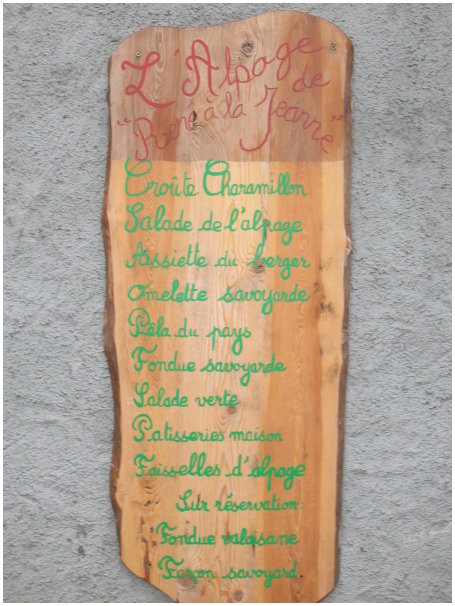 L'Alpage
de
"René à la Jeanne"
Croûte Charamillon
Salade de l'alpage
Assiette du berger
Omelette savoyarde
Pèla du pays
Fondue savoyarde
Salade verte
Patisseries maison
Faisselles d'alpage
Sur réservation:
Fondue valaisane
Farçon savoyard